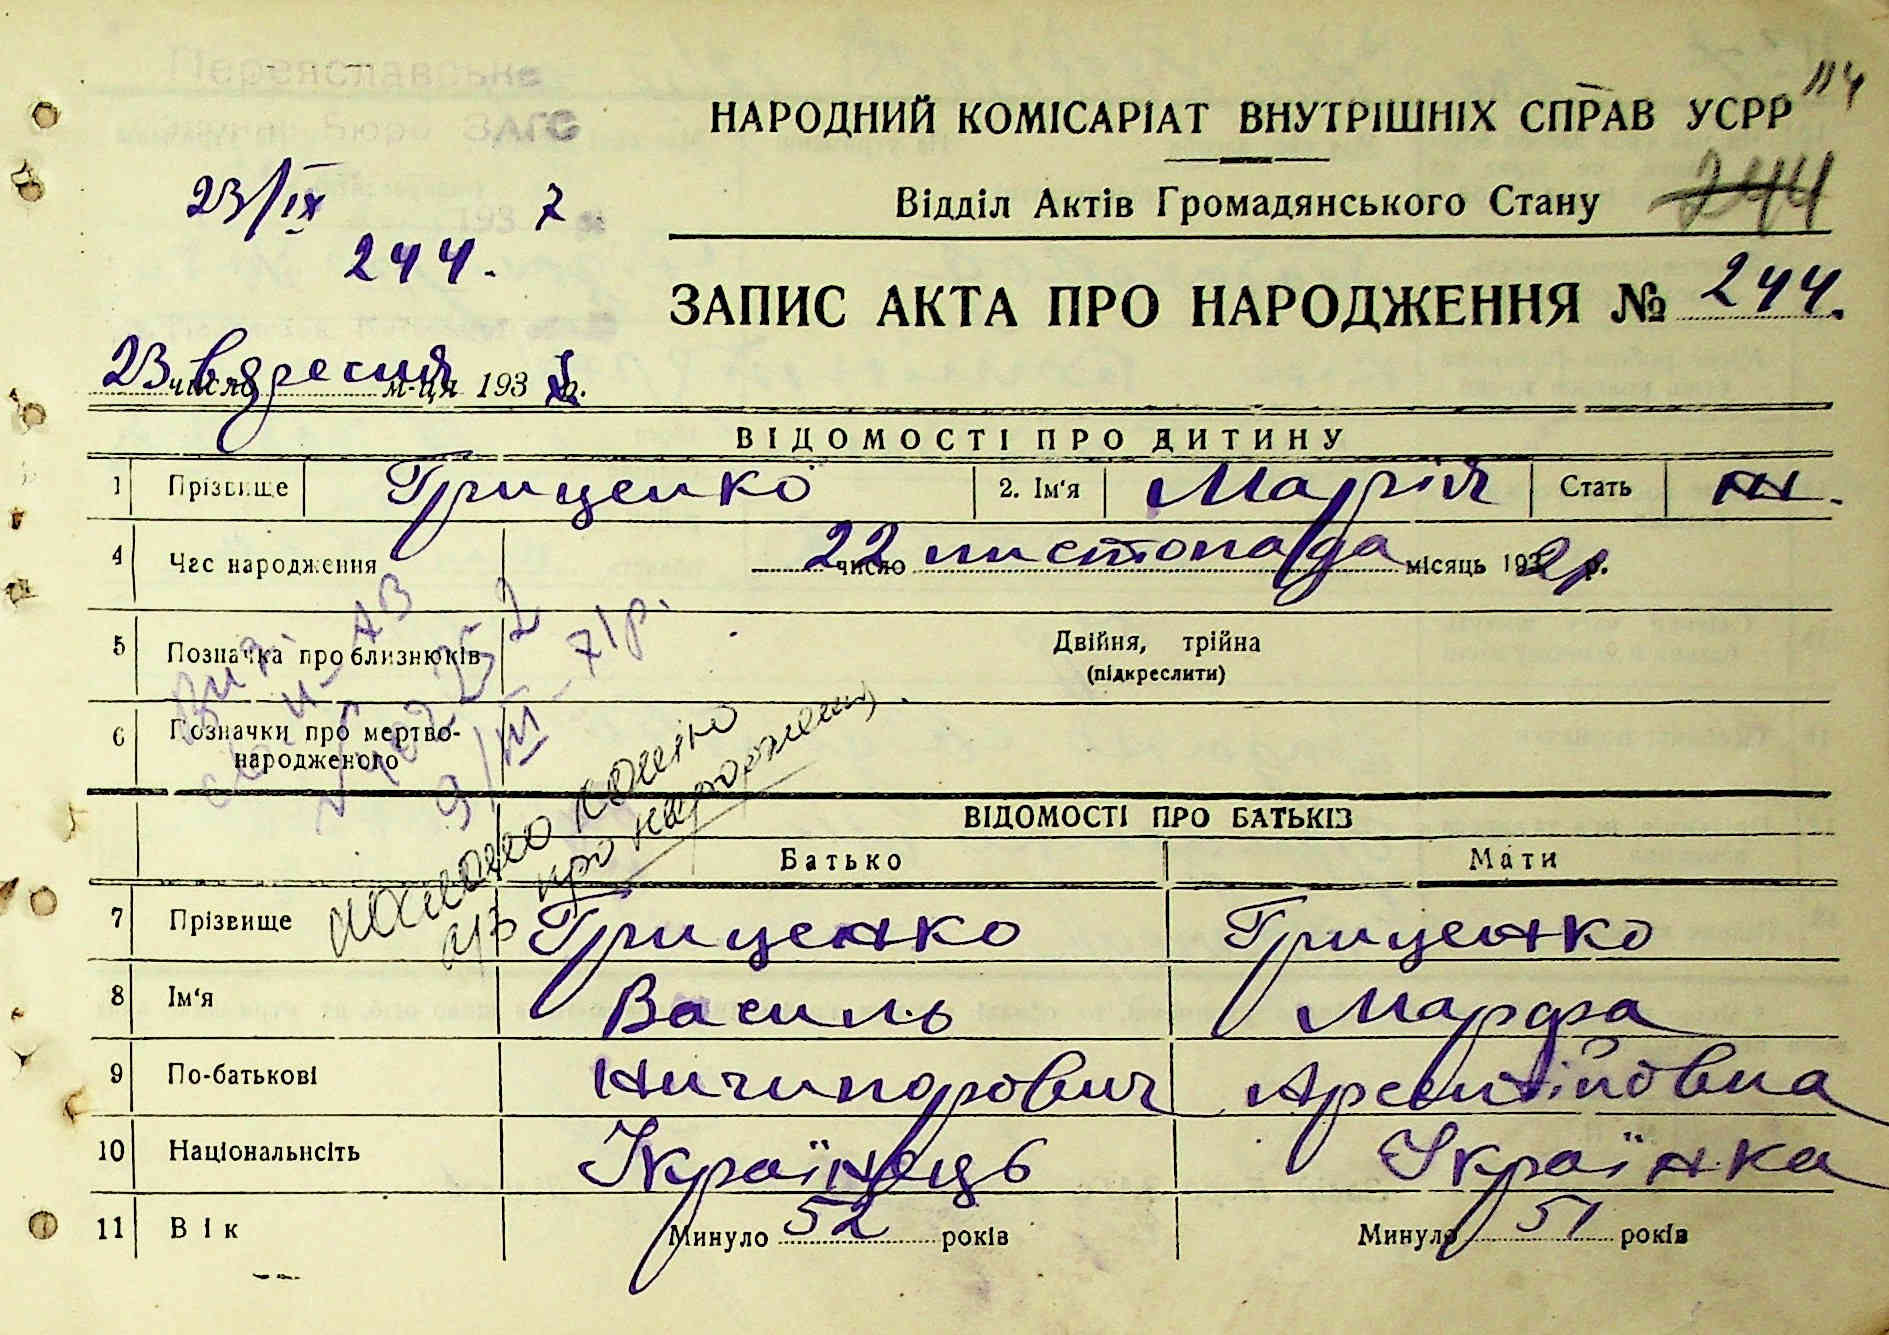 Переяславське
Бюро ЗАГС
114
НАРОДНИЙ КОМІСАРІАТ ВНУТРІШНІХ СПРАВ УСРР
23/ІХ 193 7
Відділ Актів Громадянського Стану 244
244.
ЗАПИС АКТА ПРО НАРОДЖЕННЯ № 244.
23 число вересня м-ця 193 р.
ВІДОМОСТІ ПРО ДИТИНУ
1 Прізвище Гриценко 2. Ім'я Марія Стать ж.
4 Час народження 22 число листопада місяць 192 р.
5 Позначка про близнюків Двійня, трійна
(підкреслити)
6 Позначки про мертво-
народженого
9/III-71р.
про народження
ВІДОМОСТІ ПРО БАТЬКІВ
Батько Мати
7 Прізвище Гриценко Гриценко
8 Ім'я Василь Марфа
9 По-батькові Ничипорович Арсентіївна
10 Національність Українець Українка
11 Вік Минуло 52 років Минуло 51 років